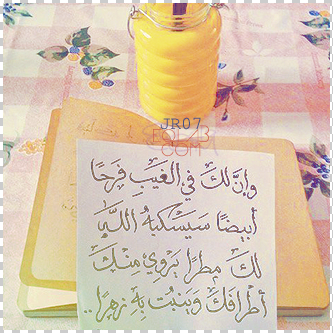 JR07
.COM
وَإِنَّ لَكَ فِي الغَيبِ فَرَحًا
أبيضًا سَيَسكبهُ اللَّـهُ
لكَ مطرا يَروِي مِنْكَ
أطْرافَكَ وَينبُت بِهِ زَهرا..